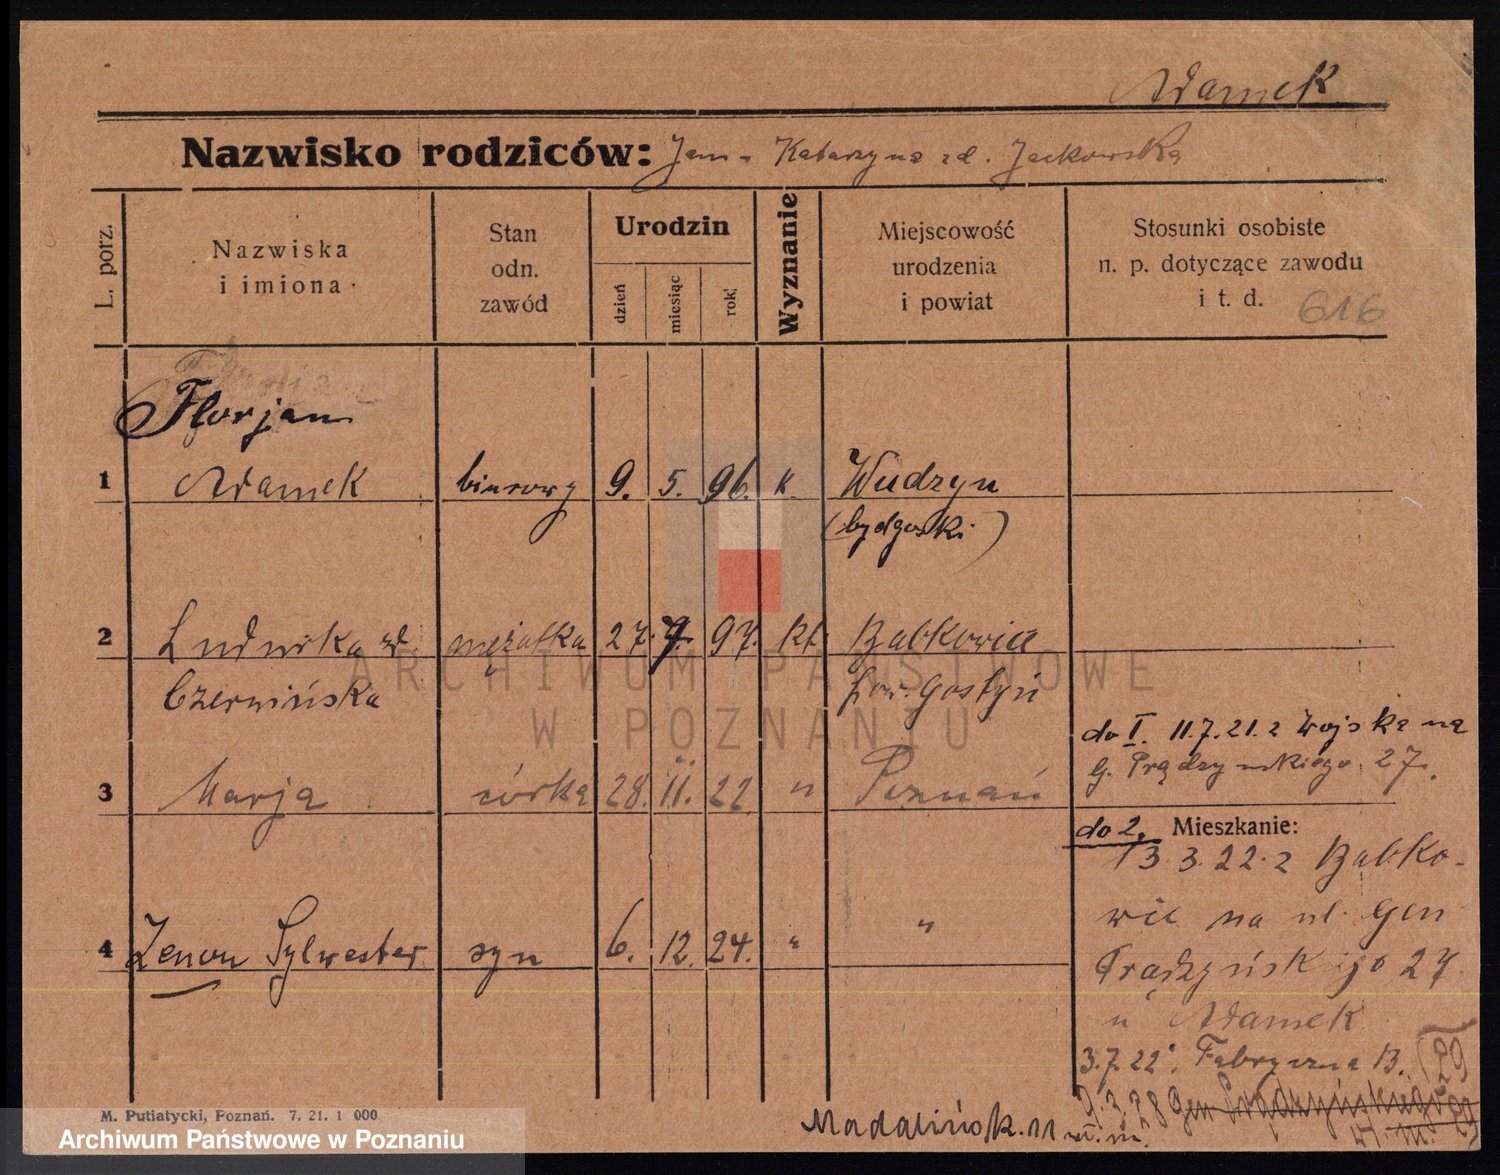 Adamek
Nazwisko rodziców: Jan - Katarzyna zd. Jackowska
L. porz.
Nazwiska
i imiona
Stan
odn.
zawód
Urodzin
dzień
miesiąc
rok
Wyznanie
Miejscowość
urodzenia
i powiat
Stosunki osobiste
n. p. dotyczące zawodu
i t. d. 616
Florjan
1 Adamek biurowy 9. 5. 96. k. Wudzyn
(bydgoski)
2 Ludwika zd. mężatka 27. 7. 97. kt. Babkowice
Czerwińska pow. Gostyń
do I. 11.7.21. z Wojska na
G. Prądzyńskiego 27.
3 Marja córka 28. 11. 22 " Poznań
do 2. Mieszkanie:
13.3.22. z Babko-
wic na ul. Gen
Prądzyńskiego 27.
u Adamek
4 Zenon Sylwester syn 6. 12. 24. " "
3.7.22. Fabryczna 13.
9.3.28 Gen Prądzyńskiego 29
Madalińsk. 11 m.
M. Putiatycki, Poznań. 7. 21. 1 000
Archiwum Państwowe w Poznaniu
ARCHIWUM PAŃSTWOWE
W POZNANIU